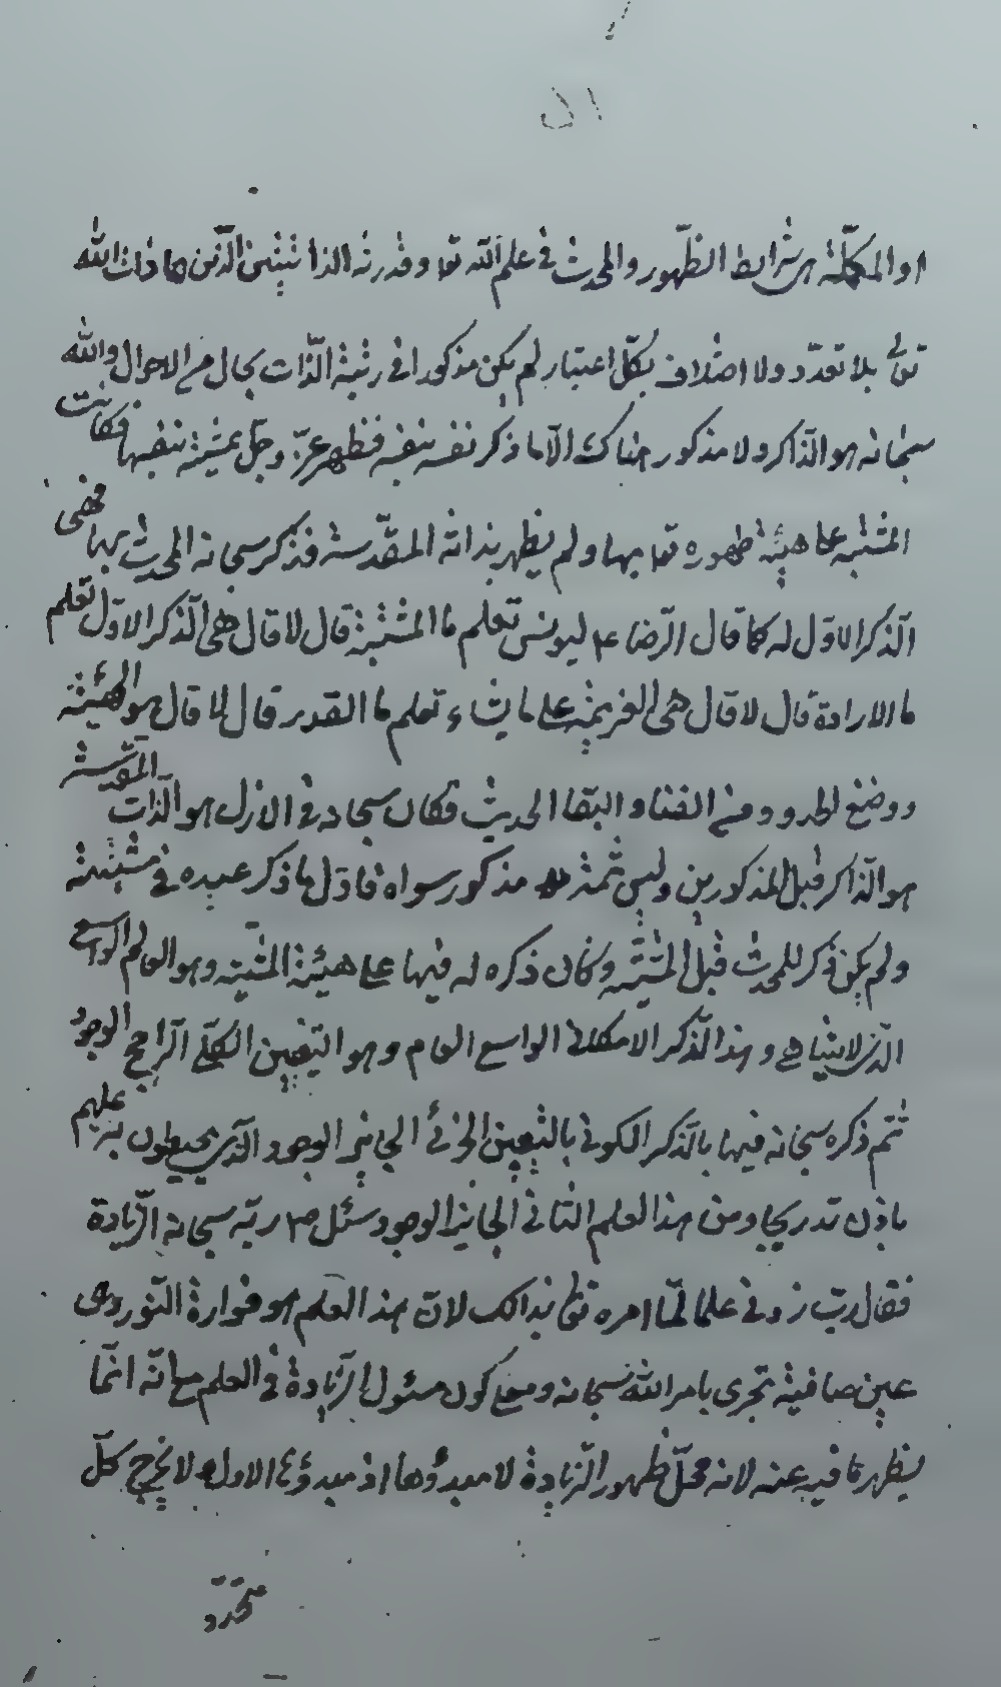 او المكمّلة من شرائط الظّهور والمحدث في علم اللّه تعا وقدرته الذاتيتين الّذين هما ذات اللّه
تعالى بلا تعدّد ولا اختلاف بكلّ اعتبار لم يكن مذكورا في رتبة الذّات بحال من الاحوال واللّه
سبحانه هو الذّاكر ولا مذكور هناك الّا ما ذكر نفسه بنفسه فظهر عزّ وجلّ بمشيّته بنفسها فكانت
المشيّة على هيئة ظهوره تعا بها ولم يظهر بذاته المقدّسة فذكر سبحانه المحدث بها فهي
الّذكر الاوّل له كما قال الرّضا ع ليونس تعلم ما المشيّة قال لا قال هي الّذكر الاوّل تعلم
ما الارادة قال لا قال هي العزيمة على ما يشاء تعلم ما القدر قال لا قال هو الهندسة
ووضع الحدود من الفناء والبقا الحديث فكان سبحانه في الازل هو الّذات المقدّسة
هو الذّاكر قبل المذكورين وليس ثمّة مذكور سواه فاوّل ما ذكر عبده في مشيّته
ولم يكن ذكر للمحدث قبل المشيّة وكان ذكره له فيها على هيئة المشيّة وهو العالم الواسع
الّذي لا يتناهى وهذا الّذكر الامكاني الواسع العام وهو التعين الكلّي الرّاجح الوجود
ثّم ذكره سبحانه فيها بالّذكر الكوني بالتعين الجزئي الجايز الوجود الّذي يحيطون به عليهم
باذن تدريجا ومن هذا العلم الثاني الجايز الوجود سئل ص ربّه سبحانه الزّيادة
فقال ربّ زدني علما لمّا امره تعالى بذالك لانّ هذا العلم هو فوارة النّور وهي
عين صافية تجرى بامر اللّه سبحانه ومع كون مسئول الزّيادة في العلم مع انّه انّما
يظهر ما فيه عنه لانه محلّ ظهور الزّيادة لا مبدؤها اذ مبدؤها الاول ولا يخرج كلّ